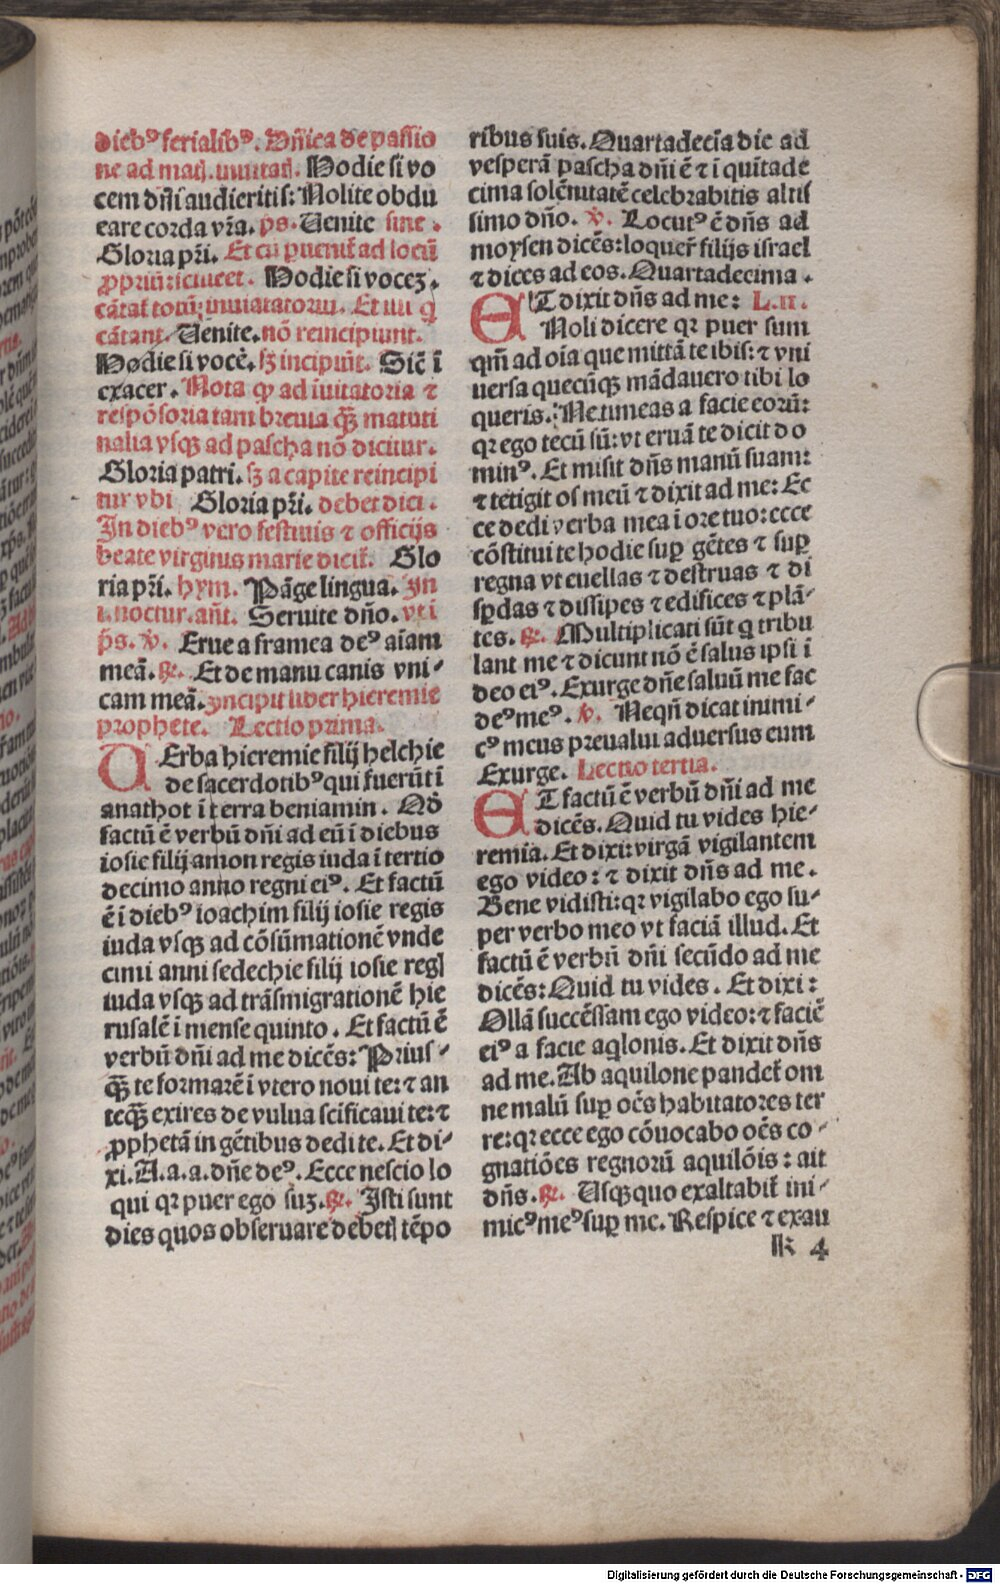 dieb⁹ ferialib⁹. Dñica de passio
ne ad mat. inuitat. Hodie si vo
cem dñi audieritis: Nolite obdu
eare corda vr̃a. ps. Uenite sine.
Gloria pr̃i. Et cũ puenit ad locũ
ꝓpriũ: Hodie si vocez.
cãtat totũ inuitatoriũ. Et
cãtant. Uenite. nõ reincipiunt.
Hodie si vocẽ. sꝫ incipiũt. Sic̃ ĩ
exacer. Nota ꝙ ad ĩuitatoria ⁊
respõsoria tam breuia q̃ꝫ matuti
nalia vsqꝫ ad pascha nõ dicitur.
Gloria patri. sꝫ a capite reincipi
tur vbi Gloria pr̃i. debet dici.
In dieb⁹ vero festiuis ⁊ officijs
beate virginis marie dicit̃. Glo
ria pr̃i. hym. Pãge lingua. In
i. noctur. añt. Seruite dño. vt ĩ
p̃s. v̷. Erue a framea de⁹ aĩam
meã. ꝶ. Et de manu canis vni⸗
cam meã. Incipit liber hieremie
prophete. Lectio prima.
UErba hieremie filij helchie
de sacerdotib⁹ qui fuerũt ĩ
anathot ĩ terra beniamin. Qd̃
factũ ẽ verbũ dñi ad eũ ĩ diebus
iosie filij amon regis iuda ĩ tertio
decimo anno regni ei⁹. Et factũ
ẽ ĩ dieb⁹ ioachim filij iosie regis
iuda vsqꝫ ad cõsũmationẽ vnde
cimi anni sedechie filij iosie regꝭ
iuda vsqꝫ ad trãsmigrationẽ hie
rusalẽ ĩ mense quinto. Et factũ ẽ
verbũ dñi ad me dicẽs: Prius⸗
q̃ꝫ te formarẽ ĩ vtero noui te: ⁊ an
teq̃ꝫ exires de vulua scificaui te: ⁊
ꝓphetã in gẽtibus dedi te. Et di⸗
xi. A. a. a. dñe de⁹. Ecce nescio lo
qui qꝛ puer ego suꝫ. ꝶ. Isti sunt
dies quos obseruare debetꝭ tẽpo
ribus suis. Quartadecĩa die ad
vesperã pascha dñi ẽ ⁊ ĩ quĩtade
cima solẽnitatẽ celebrabitis altis
simo dño. v̷. Locut⁹ ẽ dñs ad
moysen dicẽs: loquer̃ filijs israel
⁊ dices ad eos. Quartadecima.
ET dixit dñs ad me: L. ii.
Noli dicere qꝛ puer sum
qm̃ ad oĩa que mittã te ibis: ⁊ vni
uersa quecũqꝫ mãdauero tibi lo
queris. Ne timeas a facie eorũ:
qꝛ ego tecũ sũ: vt eruã te dicit do
min⁹. Et misit dñs manũ suam:
⁊ tetigit os meũ ⁊ dixit ad me: Ec
ce dedi verba mea ĩ ore tuo: ecce
cõstitui te hodie suꝑ gẽtes ⁊ suꝑ
regna vt euellas ⁊ destruas ⁊ di
sꝑdas ⁊ dissipes ⁊ edifices ⁊ plã⸗
tes. ꝶ. Multiplicati sũt q̃ tribu
lant me ⁊ dicunt nõ ẽ salus ipsi ĩ
deo ei⁹. Exurge dñe saluũ me fac
de⁹ me⁹. v̷. Neqñ dicat inimi⸗
c⁹ meus preualui aduersus eum
Exurge. Lectio tertia.
ET factũ ẽ verbũ dñi ad me
dicẽs. Quid tu vides hie⸗
remia. Et dixi: virgã vigilantem
ego video: ⁊ dixit dñs ad me.
Bene vidisti: qꝛ vigilabo ego su⸗
per verbo meo vt faciã illud. Et
factũ ẽ verbũ dñi secũdo ad me
dicẽs: Quid tu vides. Et dixi:
Ollã succẽssam ego video: ⁊ faciẽ
ei⁹ a facie aq̃lonis. Et dixit dñs
ad me. Ab aquilone pandet̃ om
ne malũ suꝑ oẽs habitatores ter
re: qꝛ ecce ego cõuocabo oẽs co⸗
gnatiões regnorũ aquilõis: ait
dñs. ꝶ. Usqꝫquo exaltabit̃ ini⸗
mic⁹ me⁹ suꝑ me. Respice ⁊ exau
k 4
Digitalisierung gefördert durch die Deutsche Forschungsgemeinschaft - DFG